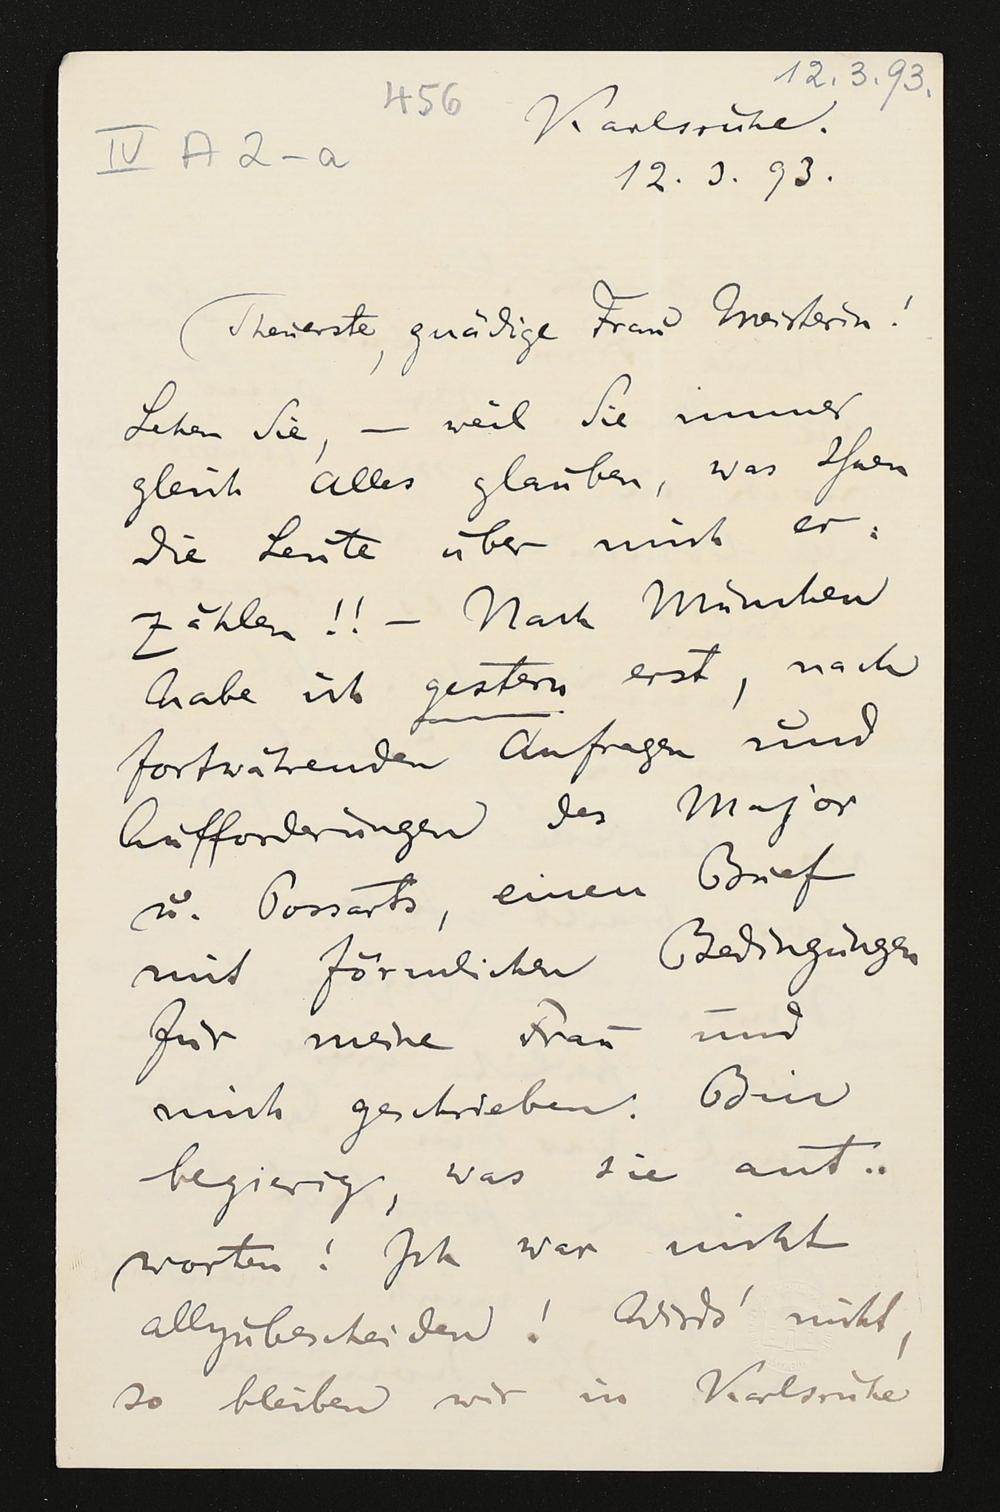 12.3.93.
456
IV A 2-a
Karlsruhe.
12. 3. 93.
Theuerste, gnädige Frau Meisterin!
Sehen Sie, — weil Sie immer
gleich alles glauben, was Ihnen
die Leute über mich er:
zählen!! — Nach München
habe ich gestern erst, nach
fortwährenden Anfragen und
Aufforderungen des Major
u. Possarts, einen Brief
mit förmlichen Bedingungen
für meine Frau und
mich geschrieben. Bin
begierig, was sie ant..
worten! Ich war nicht
allzubescheiden! Wirds' nicht,
so bleiben wir in Karlsruhe